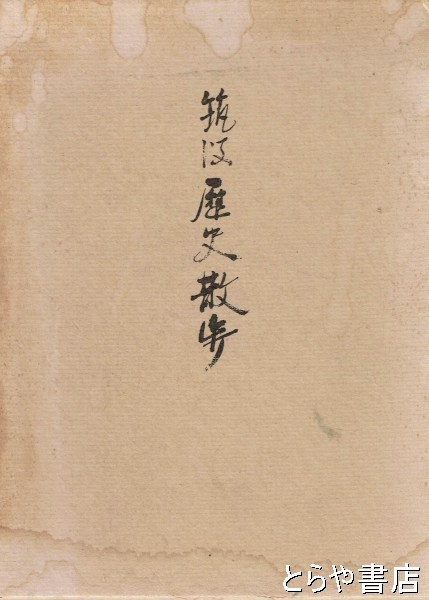 筑後歴史散歩
とらや書店